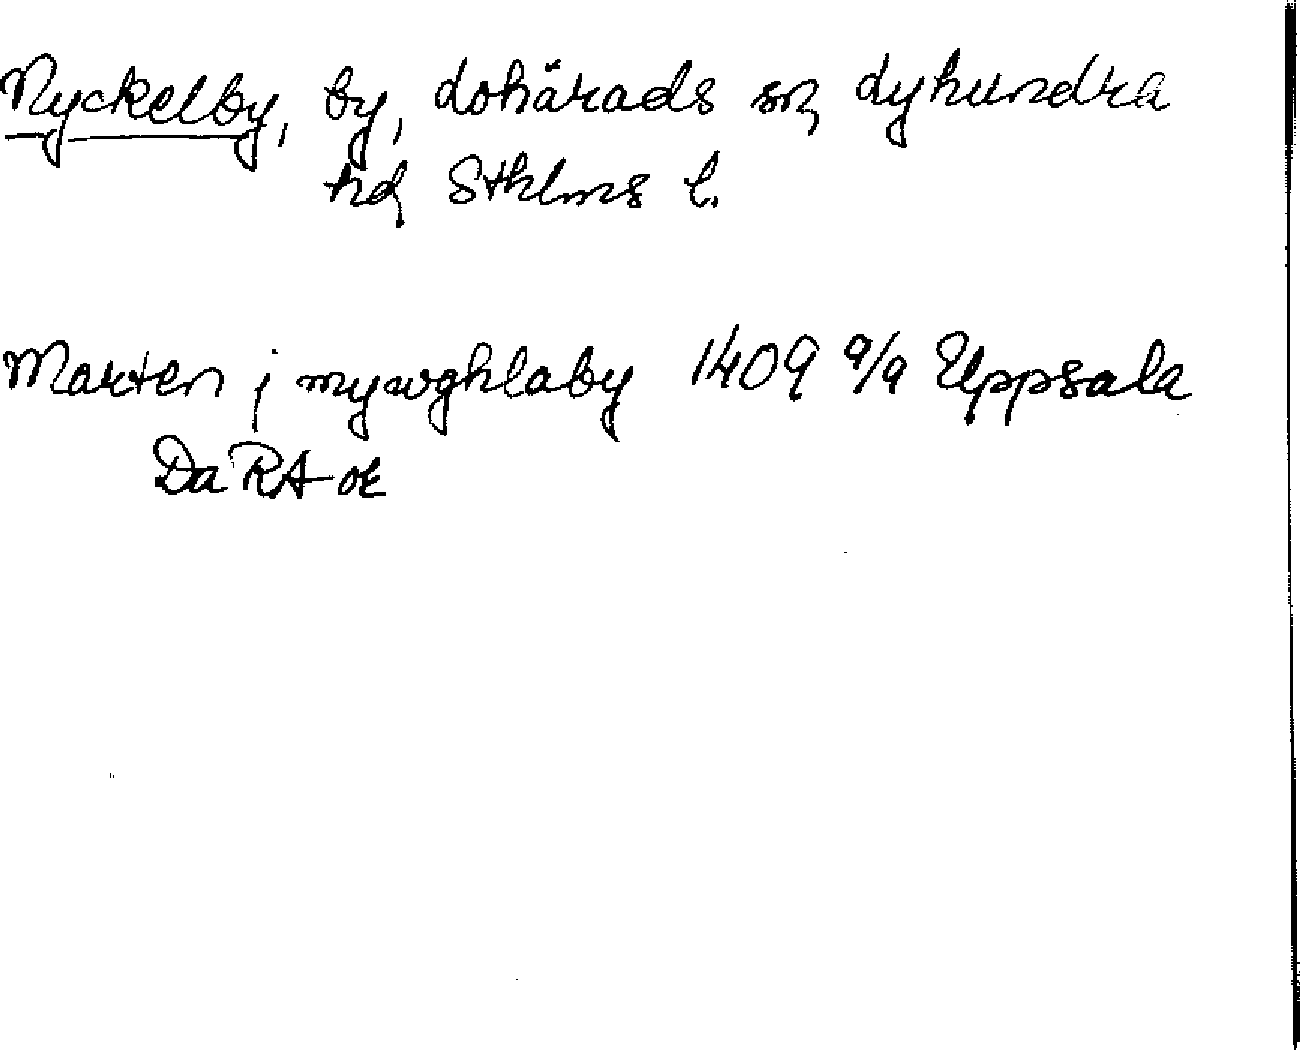 Nyckelby, by, Lohärads sn, Lyhundra
hd, Sthlms l.
Marten j mywghlaby 1409 9/9 Uppsala
Da RA or